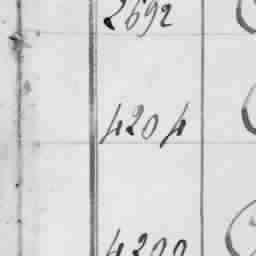 2692
4204
4200